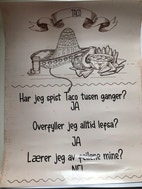 TACO
Har jeg spist Taco tusen ganger?
JA
Overfyller jeg alltid lefsa?
JA
Lærer jeg av feilene mine?
NEI